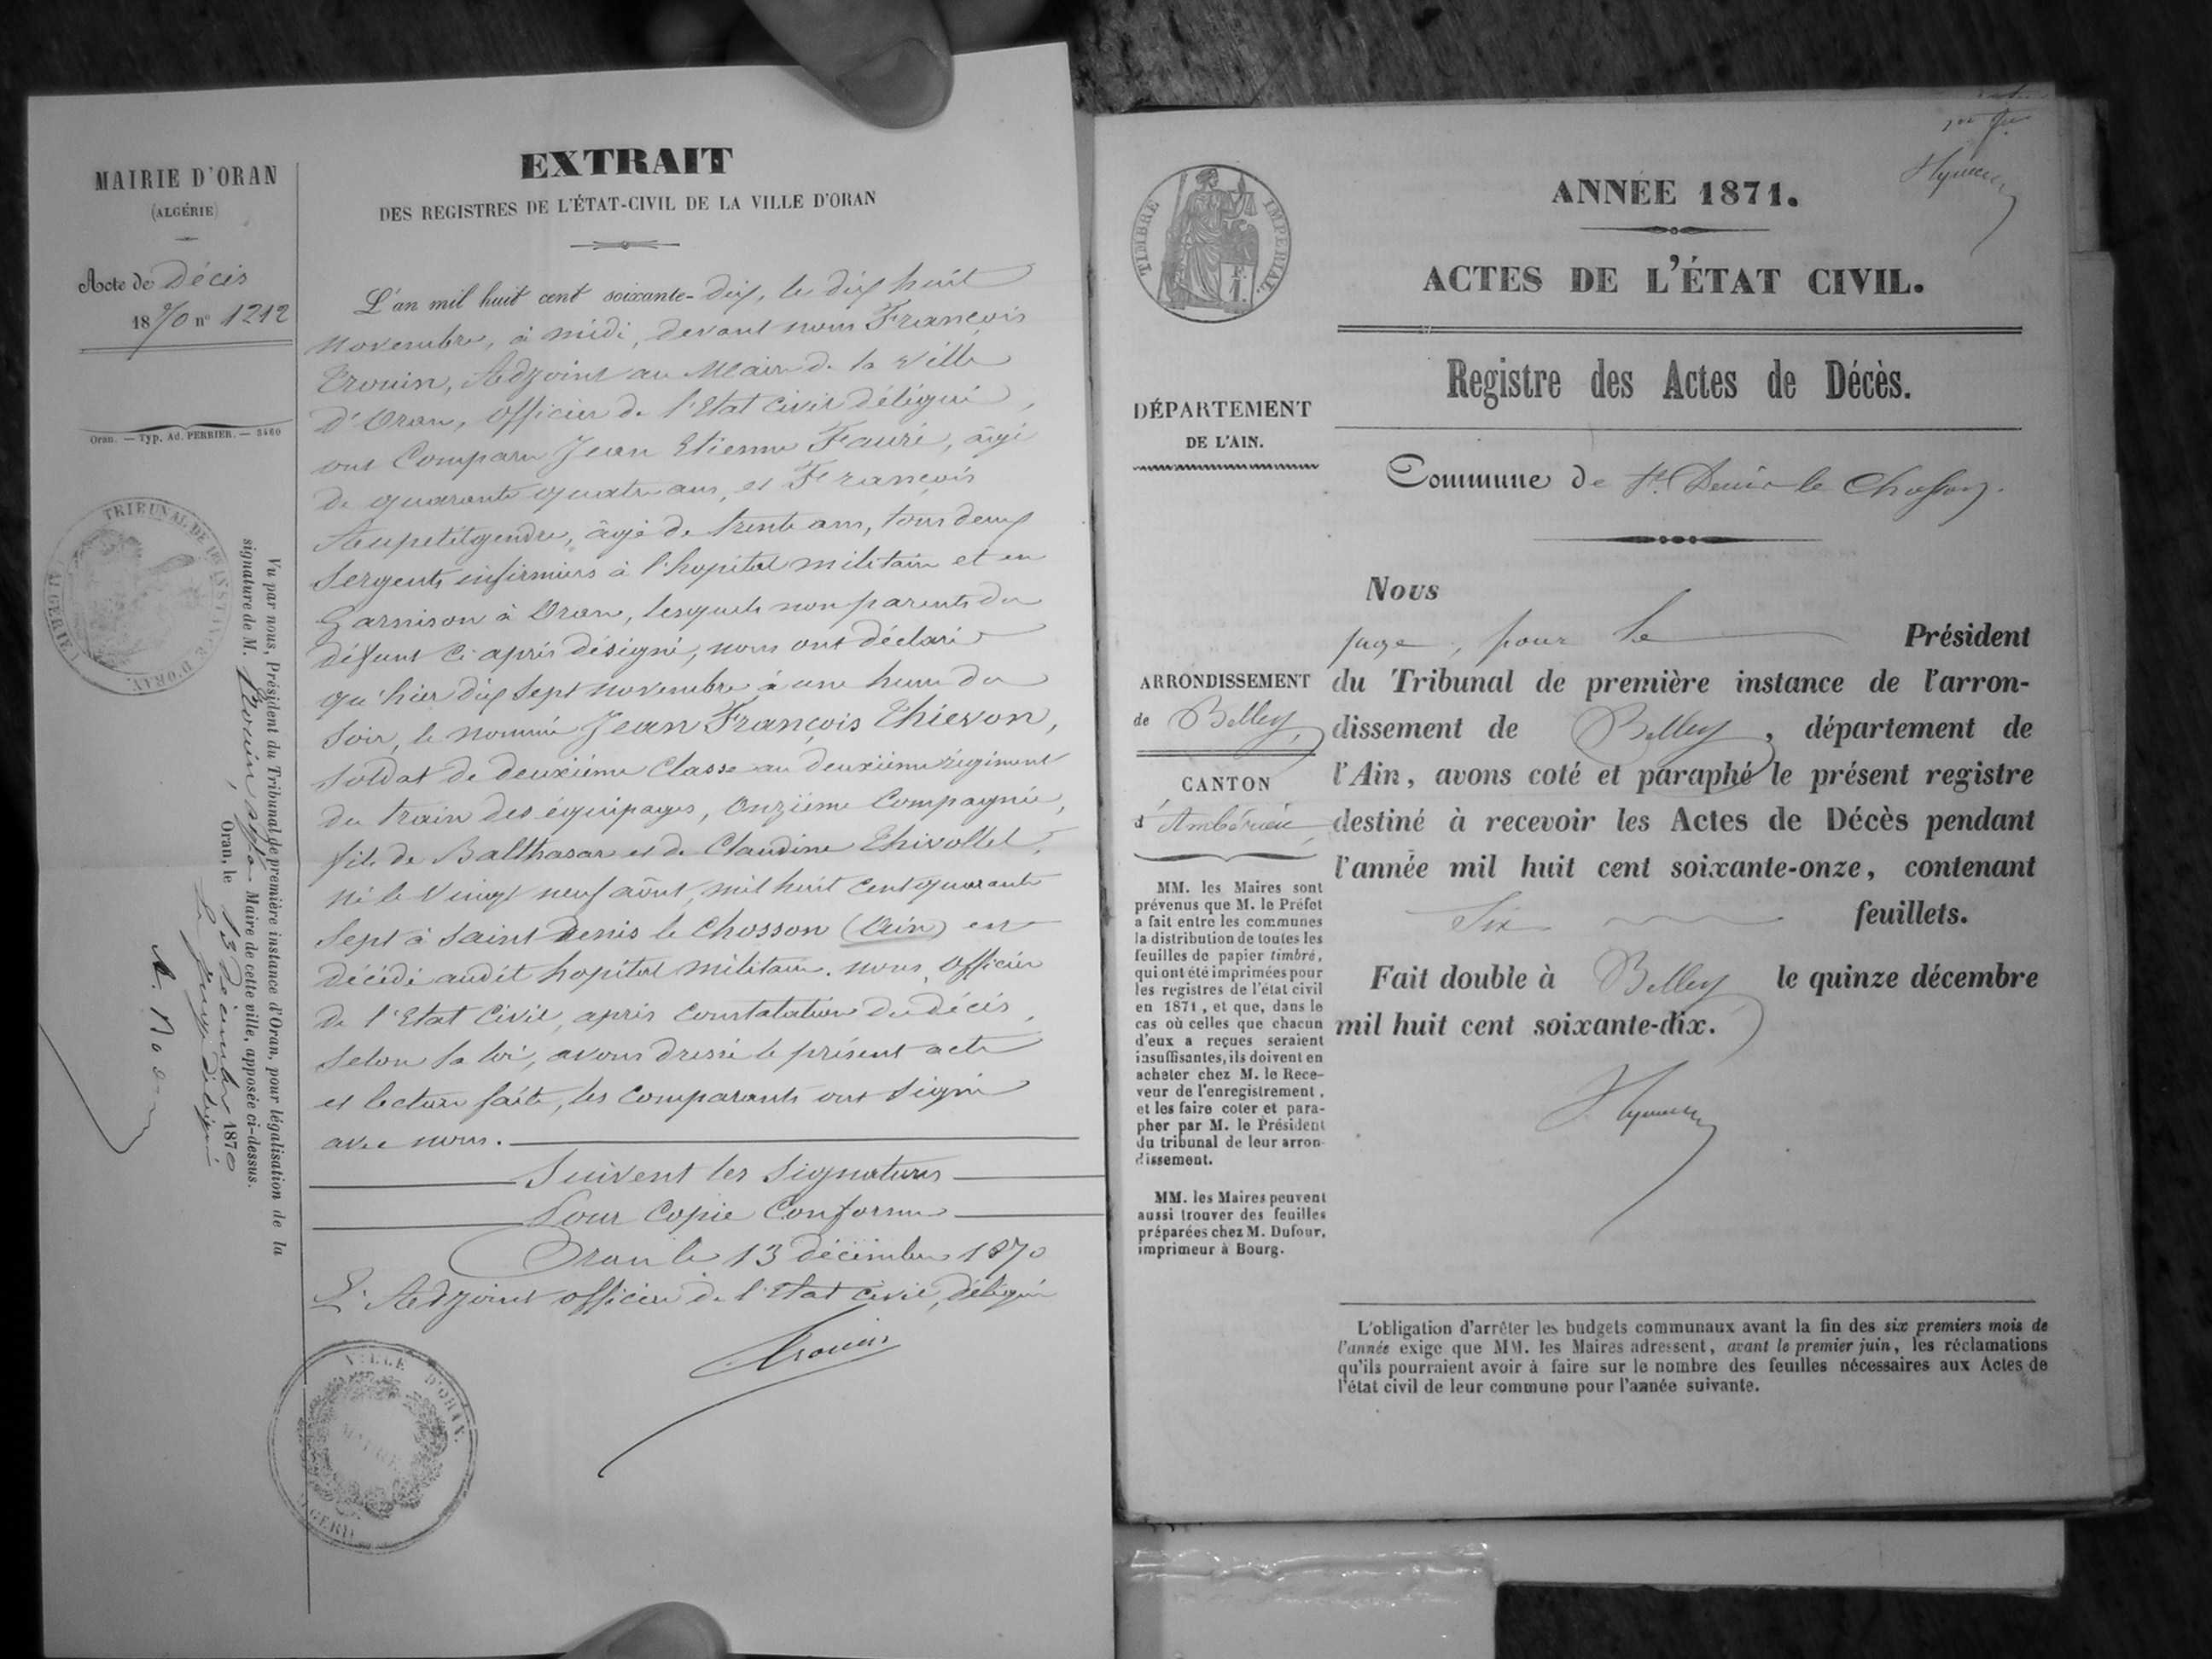 MAIRIE D'ORAN
(ALGÉRIE)
Acte de Décès
1870 n° 1212
Oran. — Typ. Ad. PERRIER. — 3460
TRIBUNAL DE 1ère INSTANCE D'ORAN
(ALGÉRIE)
Vu par nous, Président du Tribunal de première instance d'Oran, pour légalisation de la
signature de M. Trouin Maire de cette ville, apposée ci-dessus.
Oran, le 13 Décembre 1870
Le Juge délégué
EXTRAIT
DES REGISTRES DE L'ÉTAT-CIVIL DE LA VILLE D'ORAN
L'an mil huit cent soixante-dix, le dix huit
Novembre, à midi, devant nous François
Trouin, Adjoint au Maire de la Ville
d'Oran, officier de l'Etat Civil délégué,
ont Comparu Jean Etienne Fauré, âgé
de quarante quatre ans, et François
Aupetitgendre, âgé de trente ans, tous deux
Sergents infirmiers à l'hopital militaire et en
Garnison à Oran, lesquels non parents du
défunt Ci après désigné, nous ont déclaré
qu'hier dix sept novembre à une heure du
soir, le nommé Jean François Thievon,
Soldat de deuxième Classe au deuxième régiment
du train des équipages, Onzième Compagnie,
fils de Balthasar et de Claudine Thivollet,
né le Vingt neuf aôut mil huit Cent quarante
Sept à Saint Denis le Chosson (Ain) est
décédé audit hopital militaire. nous, Officier
de l'Etat Civil, après Constatation du décès,
Selon la loi, avons dressé le présent acte
et lecture faite, les Comparants ont Signé
avec nous.
Suivent les Signatures
Pour Copie Conforme
Oran le 13 décembre 1870
L'Adjoint officier de l'Etat Civil, délégué
Trouin
VILLE D'ORAN.
MAIRIE
ALGERIE
TIMBRE IMPERIAL.
ANNÉE 1871.
ACTES DE L'ÉTAT CIVIL.
Registre des Actes de Décès.
DÉPARTEMENT
DE L'AIN.
Commune de St. Denis le Chosson.
Nous
juge, pour le Président
ARRONDISSEMENT
de Belley,
CANTON
d'Ambérieu
du Tribunal de première instance de l'arron-
dissement de Belley, département de
l'Ain, avons coté et paraphé le présent registre
destiné à recevoir les Actes de Décès pendant
l'année mil huit cent soixante-onze, contenant
Six feuillets.
Fait double à Belley le quinze décembre
mil huit cent soixante-dix.
MM. les Maires sont
prévenus que M. le Préfet
a fait entre les communes
la distribution de toutes les
feuilles de papier timbré,
qui ont été imprimées pour
les registres de l'état civil
en 1871, et que, dans le
cas où celles que chacun
d'eux a reçues seraient
insuffisantes, ils doivent en
acheter chez M. le Rece-
veur de l'enregistrement,
et les faire coter et para-
pher par M. le Président
du tribunal de leur arron-
dissement.
MM. les Maires peuvent
aussi trouver des feuilles
préparées chez M. Dufour,
imprimeur à Bourg.
L'obligation d'arrêter les budgets communaux avant la fin des six premiers mois de
l'année exige que MM. les Maires adressent, avant le premier juin, les réclamations
qu'ils pourraient avoir à faire sur le nombre des feuilles nécessaires aux Actes de
l'état civil de leur commune pour l'année suivante.